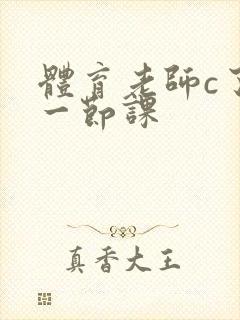 體育老師c了
一節課
真香大王